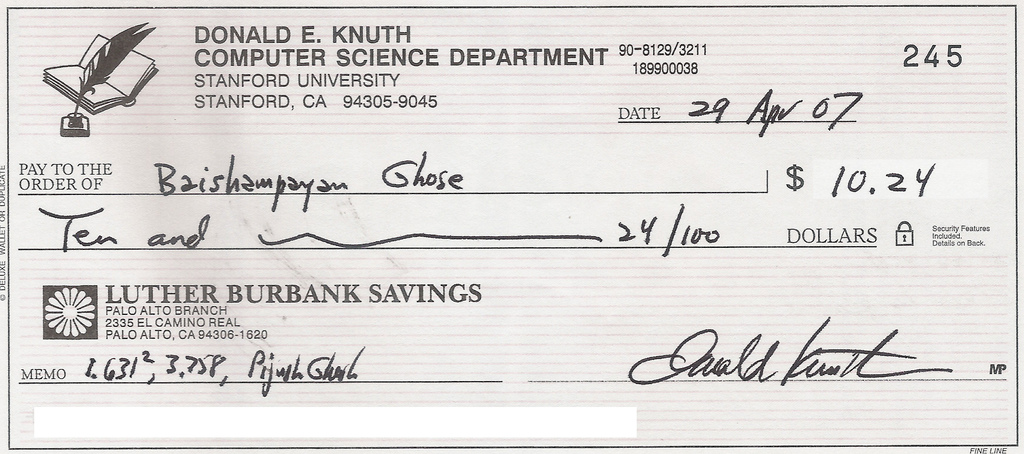 DONALD E. KNUTH
COMPUTER SCIENCE DEPARTMENT
STANFORD UNIVERSITY
STANFORD, CA 94305-9045
90-8129/3211
189900038
245
DATE 29 Apr 07
PAY TO THE
ORDER OF Baishampayan Ghose $ 10.24
Ten and 24/100 DOLLARS
Security Features
Included.
Details on Back.
© DELUXE WALLET OR DUPLICATE
LUTHER BURBANK SAVINGS
PALO ALTO BRANCH
2335 EL CAMINO REAL
PALO ALTO, CA 94306-1620
MEMO 1.631², 3.758, Pijush Ghosh
Donald Knuth
MP
FINE LINE